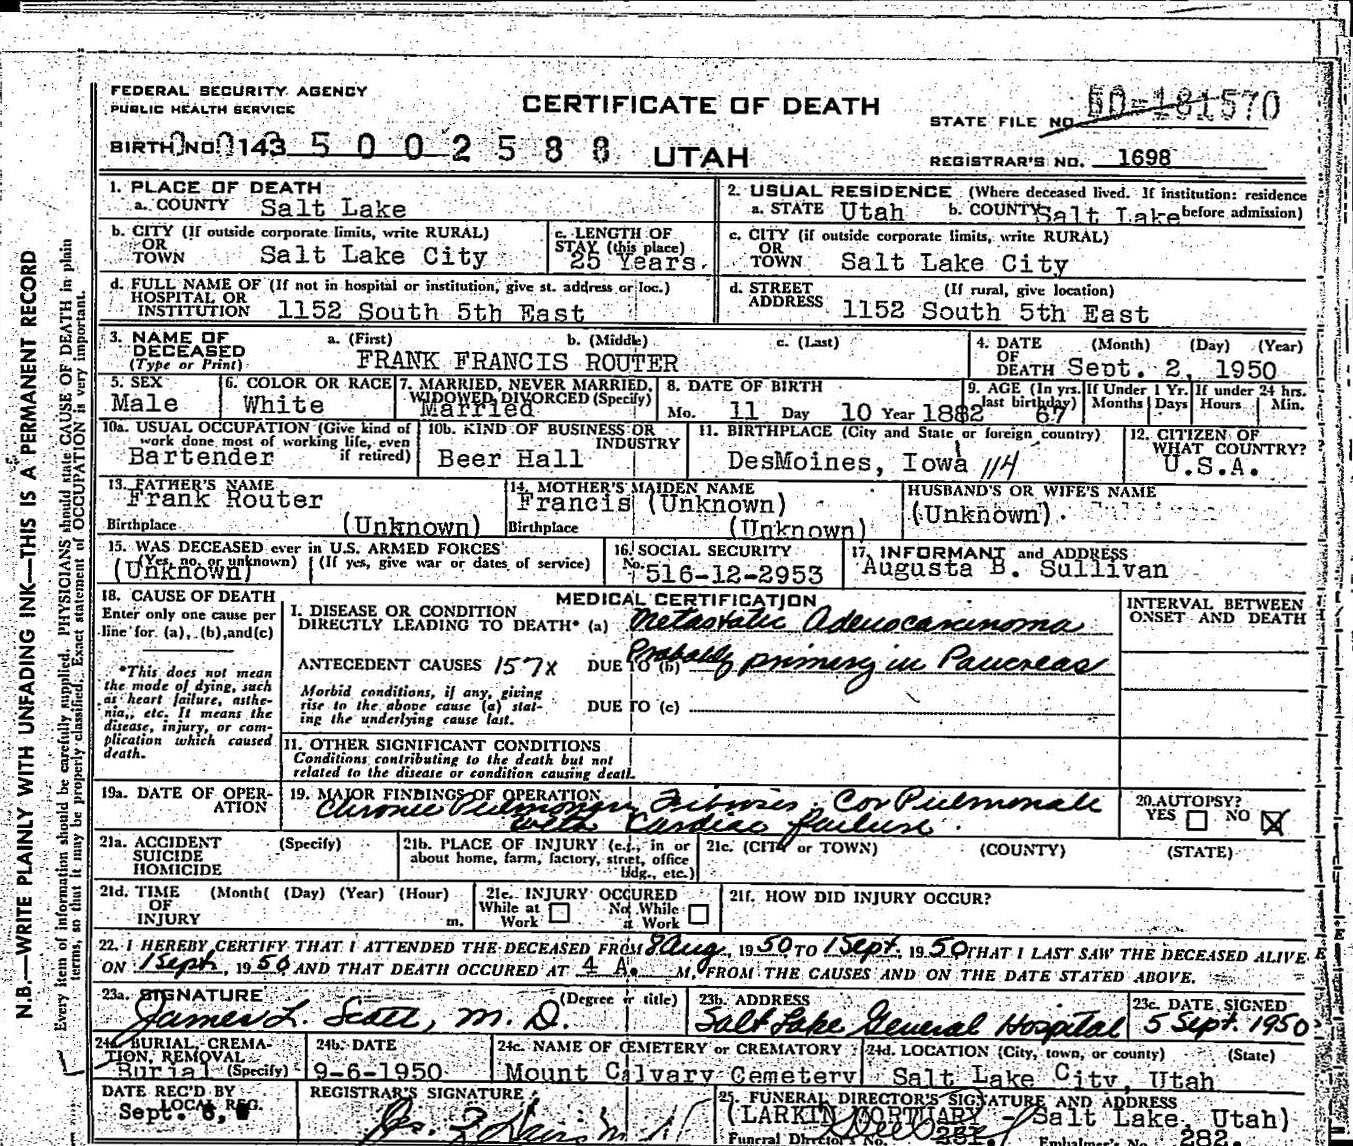 FEDERAL SECURITY AGENCY
PUBLIC HEALTH SERVICE
CERTIFICATE OF DEATH
UTAH
STATE FILE NO. 50-181570
BIRTH NO. 143 5 0 0 2 5 8 8
REGISTRAR'S NO. 1698
N.B.—WRITE PLAINLY WITH UNFADING INK—THIS IS A PERMANENT RECORD
Every item of information should be carefully supplied. PHYSICIANS should state CAUSE OF DEATH in plain
terms, so that it may be properly classified. Exact statement of OCCUPATION is very important.
1. PLACE OF DEATH
a. COUNTY Salt Lake
2. USUAL RESIDENCE (Where deceased lived. If institution: residence
a. STATE Utah b. COUNTY Salt Lake before admission)
b. CITY (If outside corporate limits, write RURAL)
OR
TOWN Salt Lake City
c. LENGTH OF
STAY (this place)
25 Years.
c. CITY (if outside corporate limits, write RURAL)
OR
TOWN Salt Lake City
d. FULL NAME OF (If not in hospital or institution, give st. address or loc.)
HOSPITAL OR
INSTITUTION 1152 South 5th East
d. STREET (If rural, give location)
ADDRESS 1152 South 5th East
3. NAME OF a. (First) b. (Middle) c. (Last)
DECEASED
(Type or Print) FRANK FRANCIS ROUTER
4. DATE (Month) (Day) (Year)
OF
DEATH Sept. 2, 1950
5. SEX
Male
6. COLOR OR RACE
White
7. MARRIED, NEVER MARRIED,
WIDOWED, DIVORCED (Specify)
Married
8. DATE OF BIRTH
Mo. 11 Day 10 Year 1882
9. AGE (In yrs. last birthday) 67
If Under 1 Yr. Months Days
If under 24 hrs. Hours Min.
10a. USUAL OCCUPATION (Give kind of
work done most of working life, even
if retired)
Bartender
10b. KIND OF BUSINESS OR
INDUSTRY
Beer Hall
11. BIRTHPLACE (City and State or foreign country)
DesMoines, Iowa 114
12. CITIZEN OF
WHAT COUNTRY?
U.S.A.
13. FATHER'S NAME
Frank Router
Birthplace (Unknown)
14. MOTHER'S MAIDEN NAME
Francis (Unknown)
Birthplace (Unknown)
HUSBAND'S OR WIFE'S NAME
(Unknown).
15. WAS DECEASED ever in U.S. ARMED FORCES
(Yes, no, or unknown) (If yes, give war or dates of service)
(Unknown)
16. SOCIAL SECURITY
No. 516-12-2953
17. INFORMANT and ADDRESS
Augusta B. Sullivan
18. CAUSE OF DEATH
Enter only one cause per
line for (a), (b), and (c)
*This does not mean
the mode of dying, such
as heart failure, asthe-
nia, etc. It means the
disease, injury, or com-
plication which caused
death.
MEDICAL CERTIFICATION
I. DISEASE OR CONDITION
DIRECTLY LEADING TO DEATH* (a) Metastatic Adenocarcinoma
ANTECEDENT CAUSES 157x DUE TO (b) Probably primary in Pancreas
Morbid conditions, if any, giving
rise to the above cause (a) stat-
ing the underlying cause last.
DUE TO (c)
INTERVAL BETWEEN
ONSET AND DEATH
11. OTHER SIGNIFICANT CONDITIONS
Conditions contributing to the death but not
related to the disease or condition causing death.
19a. DATE OF OPER-
ATION
19. MAJOR FINDINGS OF OPERATION
Chronic Pulmonary Fibrosis, Cor Pulmonale
with Cardiac failure.
20. AUTOPSY?
YES NO X
21a. ACCIDENT (Specify)
SUICIDE
HOMICIDE
21b. PLACE OF INJURY (e.g., in or
about home, farm, factory, street, office
bldg., etc.)
21c. (CITY or TOWN) (COUNTY) (STATE)
21d. TIME (Month) (Day) (Year) (Hour)
OF
INJURY m.
21e. INJURY OCCURED
While at Work Not While at Work
21f. HOW DID INJURY OCCUR?
22. I HEREBY CERTIFY THAT I ATTENDED THE DECEASED FROM 8 Aug, 1950 TO 1 Sept, 1950 THAT I LAST SAW THE DECEASED ALIVE
ON 1 Sept, 1950 AND THAT DEATH OCCURED AT 4 A. M, FROM THE CAUSES AND ON THE DATE STATED ABOVE.
23a. SIGNATURE (Degree or title)
James L. Scott, M. D.
23b. ADDRESS
Salt Lake General Hospital
23c. DATE SIGNED
5 Sept. 1950
24a. BURIAL, CREMA-
TION, REMOVAL
Burial (Specify)
24b. DATE
9-6-1950
24c. NAME OF CEMETERY or CREMATORY
Mount Calvary Cemetery
24d. LOCATION (City, town, or county) (State)
Salt Lake City, Utah
DATE REC'D BY
LOCAL REG.
Sept. 6,
REGISTRAR'S SIGNATURE
25. FUNERAL DIRECTOR'S SIGNATURE AND ADDRESS
(LARKIN MORTUARY - Salt Lake, Utah)
Funeral Director's No. 281. Embalmer's No. 282